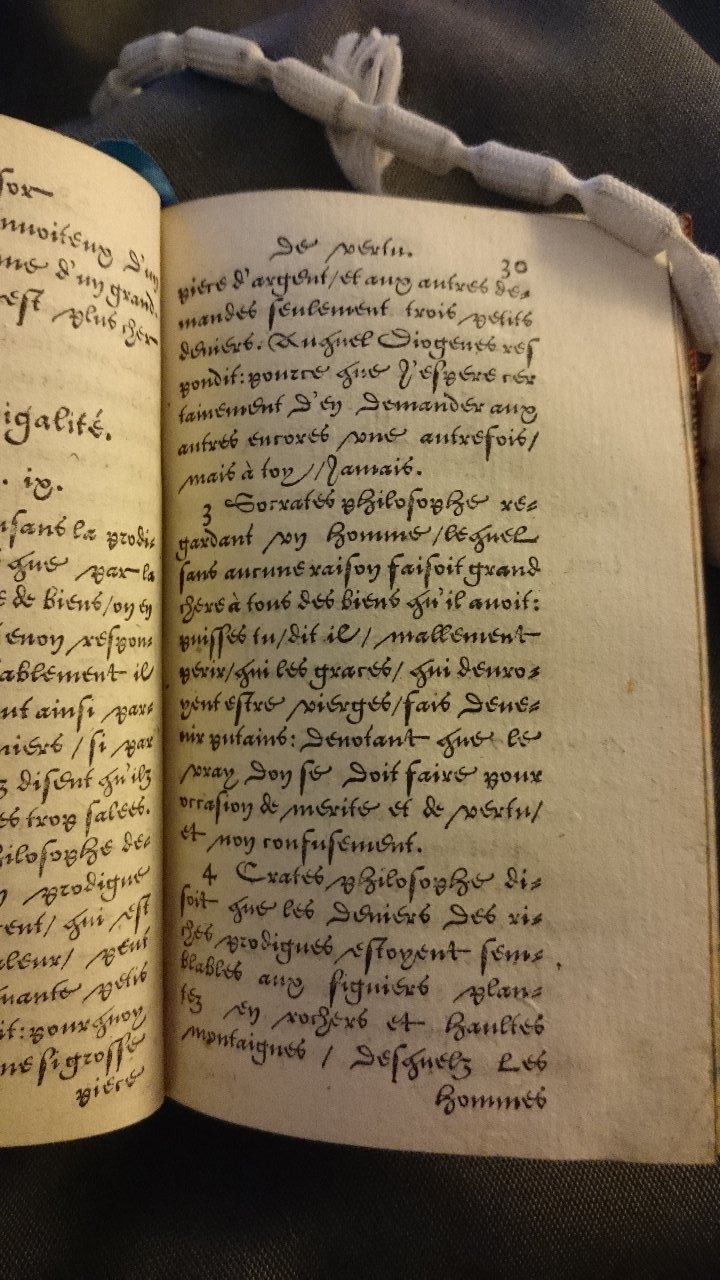 sor
nuoiteux d'un
me d'un grand.
est plus cher
igalité.
. ix.
nsans la prodi-
que par la
e de biens/on en
respon-
ablement il
nt ainsi par-
niers / si par
z disent qu'ilz
es trop salees.
hilosophe de-
n prodigue
cent/ qui est
leur/ peut
nante petis
it: pourquoy
ne si grosse
piece
de vertu. 30
piece d'argent/et aux autres de-
mandes seulement trois petits
deniers. Auquel Diogenes res
pondit: pource que J'espere cer
tainement d'en demander aux
autres encores vne autrefois/
mais à toy //Jamais.
3 Socrates philosophe re-
gardant vn homme /lequel
sans aucune raison faisoit grand
chere à tous des biens qu'il auoit:
puisses tu/dit il/ mallement
perir/qui les graces/ qui deuro-
yent estre vierges/fais deue-
nir putains: denotant que le
vray don se doit faire pour
occasion de merite et de vertu/
et non confusement.
4 Crates philosophe di-
soit que les deniers des ri-
ches prodigues estoyent sem-
blables aux figuiers plan-
tez en rochers et haultes
montaignes / desquelz les
hommes